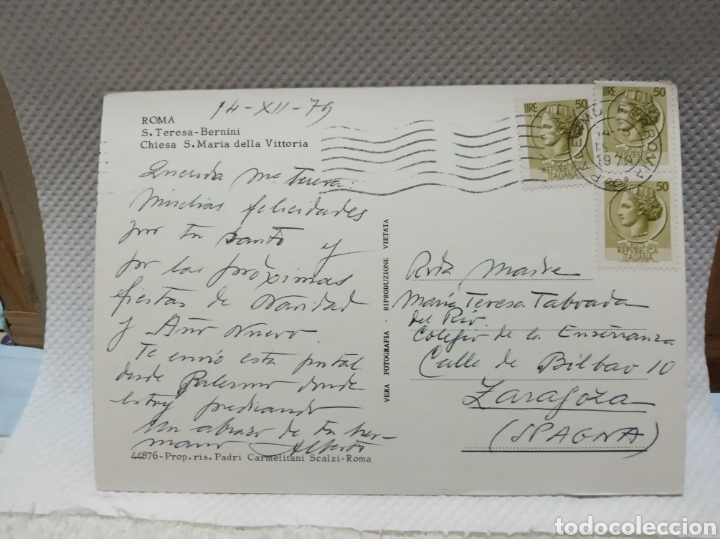 14-XII-79
ROMA
S. Teresa-Bernini
Chiesa S. Maria della Vittoria
Querida Mª Teresa:
Muchas felicidades
por tu santo y
por las próximas
fiestas de Navidad
y Año Nuevo.
Te envío esta postal
desde Palermo donde
estoy predicando
Un abrazo de tu her-
mano Alberto
44876-Prop. ris. Padri Carmelitani Scalzi-Roma
VERA FOTOGRAFIA - RIPRODUZIONE VIETATA
LIRE 50
LIRE 50
50
REPVBBLICA
ITALIANA
REPVBBLICA
ITALIANA
PALERMO
1979
Rvda Madre
María Teresa Taboada
del Río
Colegio de la Enseñanza
Calle de Bilbao 10
Zaragoza
(SPAGNA)
todocoleccion